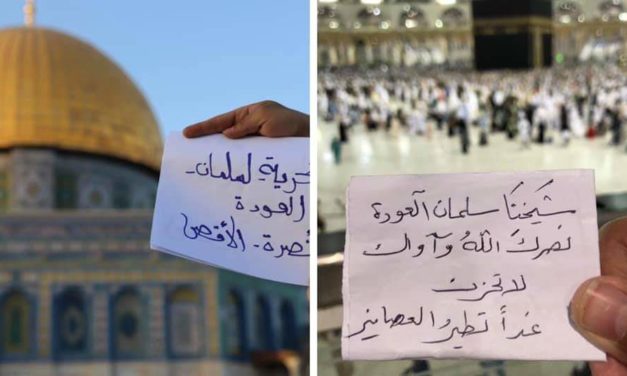 حرية لسلمان -
العودة
نصرة - الأقصى
شَيخَنَا سلمان العودة
نصركَ اللهُ وآواك
لا تحزن
غداً تطير العصافير